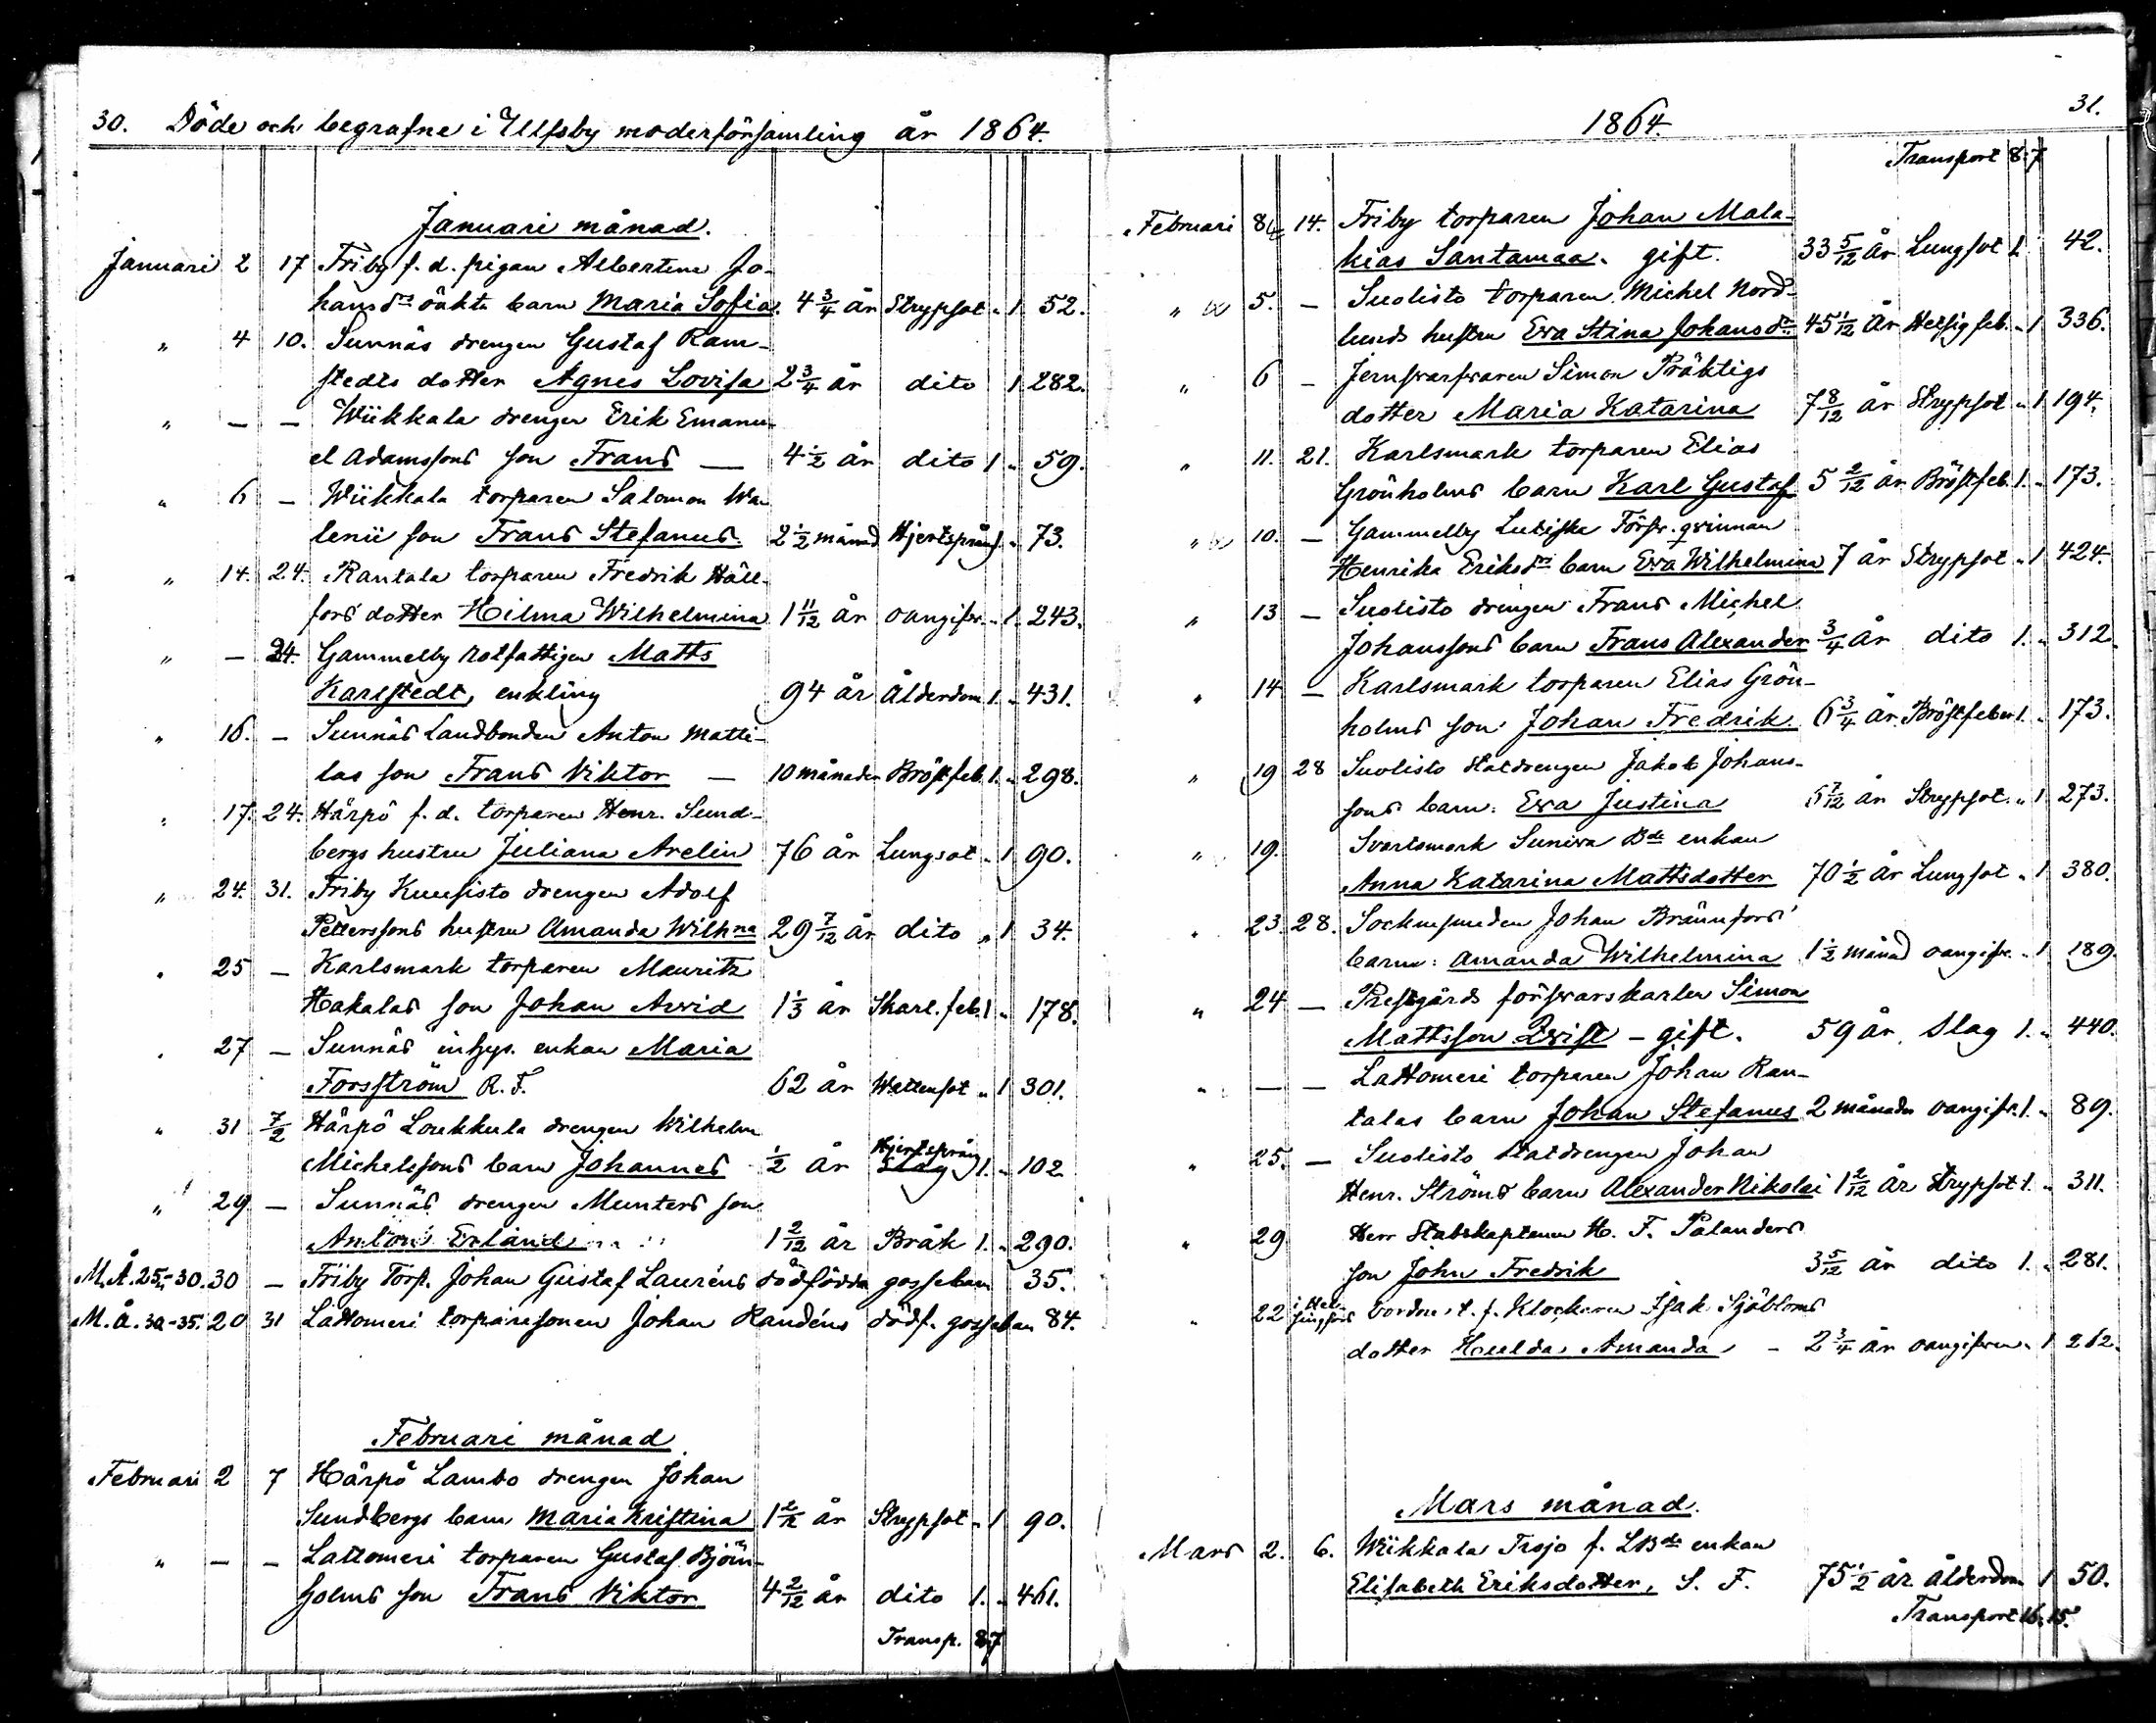 30. Döde och begrafne i Ulfsby moderförsamling år 1864.
Januari månad.
Januari 2 17 Friby f. d. pigan Albertina Jo-
hansdrs oäkta barn Maria Sofia. 4 3/4 år Strypsot " 1 52.
" 4 10. Sunnäs drengen Gustaf Ram-
stedts dotter Agnes Lovisa 2 3/4 år dito 1 282.
" — — Wiikkala drengen Erik Emanu-
el Adamssons son Frans — 4 1/2 år dito 1 " 59.
" 6 — Wiikkala torparen Salomon Wa-
lenii son Frans Stefanus. 2 1/2 månad Hjertsprång 1 " 73.
" 14. 24. Rantala torparen Fredrik Häll-
fors dotter Hilma Wilhelmina 1 11/12 år oangifv. " 1. 243.
" — 24. Gammelby rotfattigen Matts
Karlstedt, enkling 94 år Ålderdom 1. " 431.
" 16. — Sunnäs Landbonden Anton Matti-
las son Frans Viktor — 10 månader Bröstfeb. 1. " 298.
" 17. 24. Härpö f. d. torparen Henr. Sund-
bergs hustru Juliana Arelin 76 år Lungsot " 1 90.
" 24. 31. Friby Kuusisto drengen Adolf
Petterssons hustru Amanda Wilhna 29 7/12 år dito " 1 34.
" 25 — Karlsmark torparen Mauritz
Hakalas son Johan Arvid 1 1/3 år Skarl. feb. 1 " 178.
" 27 — Sunnäs inhys. enkan Maria
Forsström R. F. 62 år Wattensot " 1 301.
" 31 7/2 Härpö Loukkula drengen Wilhelm
Michelssons barn Johannes 1/2 år Hjertsprång Slag 1. " 102
" 29 — Sunnäs drengen Munters son
Anton Erland 1 2/12 år Bråk 1. " 290.
M. Å. 25-30. 30 — Friby Torp. Johan Gustaf Lauréns dödfödda gossebarn 35.
M. Å. 30-35. 20 31 Lattomeri torparesonen Johan Randéns dödf. gossebarn 84.
Februari månad
Februari 2 7 Härpö Lambo drengen Johan
Sundbergs barn Maria Kristina 1 2/12 år Strypsot " 1 90.
" — — Lattomeri torparen Gustaf Björn-
holms son Frans Viktor 4 2/12 år dito 1. " 461.
Transp. 8 7
1864. 31.
Transport 8. 7
Februari 8 14. Friby torparen Johan Mala-
kias Santamaa. gift. 33 5/12 år Lungsot 1 42.
" 5. — Suolisto torparen Michel Nord-
lunds hustru Eva Stina Johansdr 45 1/12 år Hetsig feb. " 1 336.
" 6 — Jernsvarfvaren Simon Präktigs
dotter Maria Katarina 7 8/12 år Strypsot " 1 194.
" 11. 21. Karlsmark torparen Elias
Grönholms barn Karl Gustaf 5 2/12 år Bröstfeb. 1. " 173.
" 10. — Gammelby Lutiska Försv. qvinnan
Henrika Eriksdrs barn Eva Wilhelmina 7 år Strypsot " 1 424.
" 13 — Suolisto drengen Frans Michel
Johanssons barn Frans Alexander 3/4 år dito 1. " 312.
" 14 — Karlsmark torparen Elias Grön-
holms son Johan Fredrik 6 3/4 år Bröstfeber 1. " 173.
" 19 28 Suolisto statdrengen Jakob Johans-
sons barn: Eva Justina 6 7/12 år Strypsot. " 1 273.
" 19. Svartsmark Suniva Bde enkan
Anna Katarina Mattsdotter 70 1/2 år Lungsot " 1 380.
" 23. 28. Socknesmeden Johan Brännfors'
barn: Amanda Wilhelmina 1 1/2 månad oangifv. " 1 189.
" 24 — Prestgårds försvarskarlen Simon
Mattsson Qvist — gift. 59 år. Slag 1. " 440.
" — — Lattomeri torparen Johan Ran-
talas barn Johan Stefanus 2 månader oangifv. 1. " 89.
" 25. — Suolisto statdrengen Johan
Henr. Ströms barn Alexander Nikolai 1 2/12 år Strypsot 1. " 311.
" 29 Herr Stabskaptenen H. F. Palanders
son John Fredrik 3 5/12 år dito 1. " 281.
" 22 i Helsingfors vordne t. f. Klockaren Isak Sjöbloms
dotter Hulda Amanda — 2 3/4 år oangifven " 1 262.
Mars månad.
Mars 2. 6. Wiikkala Trojo f. LBde enkan
Elisabeth Eriksdotter, S. F. 75 1/2 år ålderdom 1 50.
Transport 16. 15.